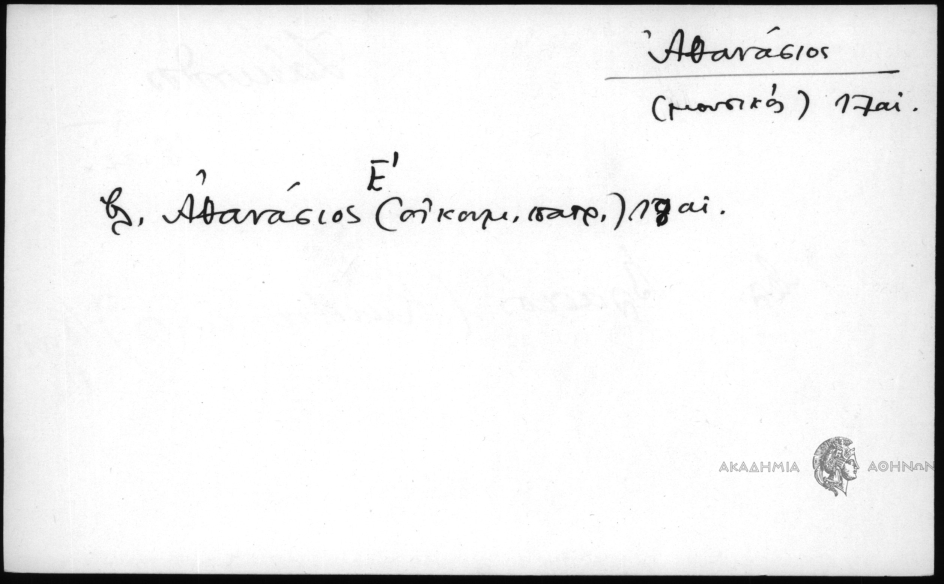 Ἀθανάσιος
(μουσικός) 17 αἰ.
βλ. Ἀθανάσιος Ε' (οἰκουμ. πατρ.) 18 αἰ.
ΑΚΑΔΗΜΙΑ ΑΘΗΝΩΝ